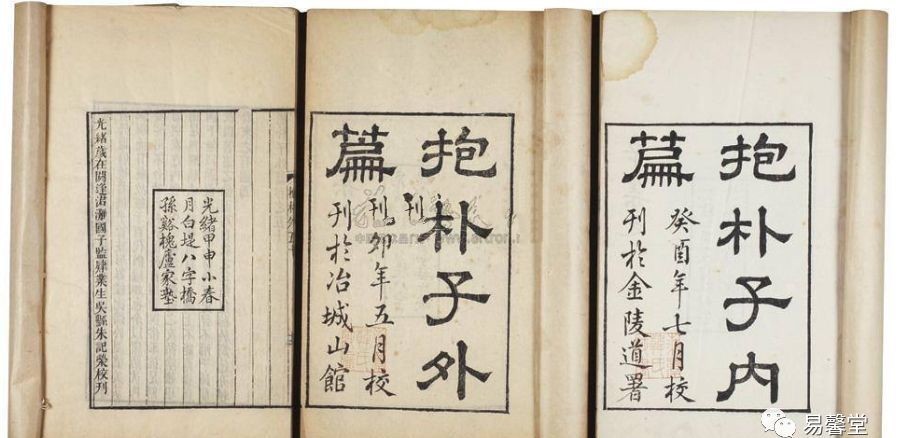 抱朴子内
篇
癸酉年七月校
刊於金陵道署
抱朴子外
篇
卯年五月校
刊於冶城山館
光緒甲申小春
月白堤八字橋
孫谿槐廬家塾
光緒歲在閼逢涒灘國子監肄業生吳縣朱記榮校刊
易馨堂